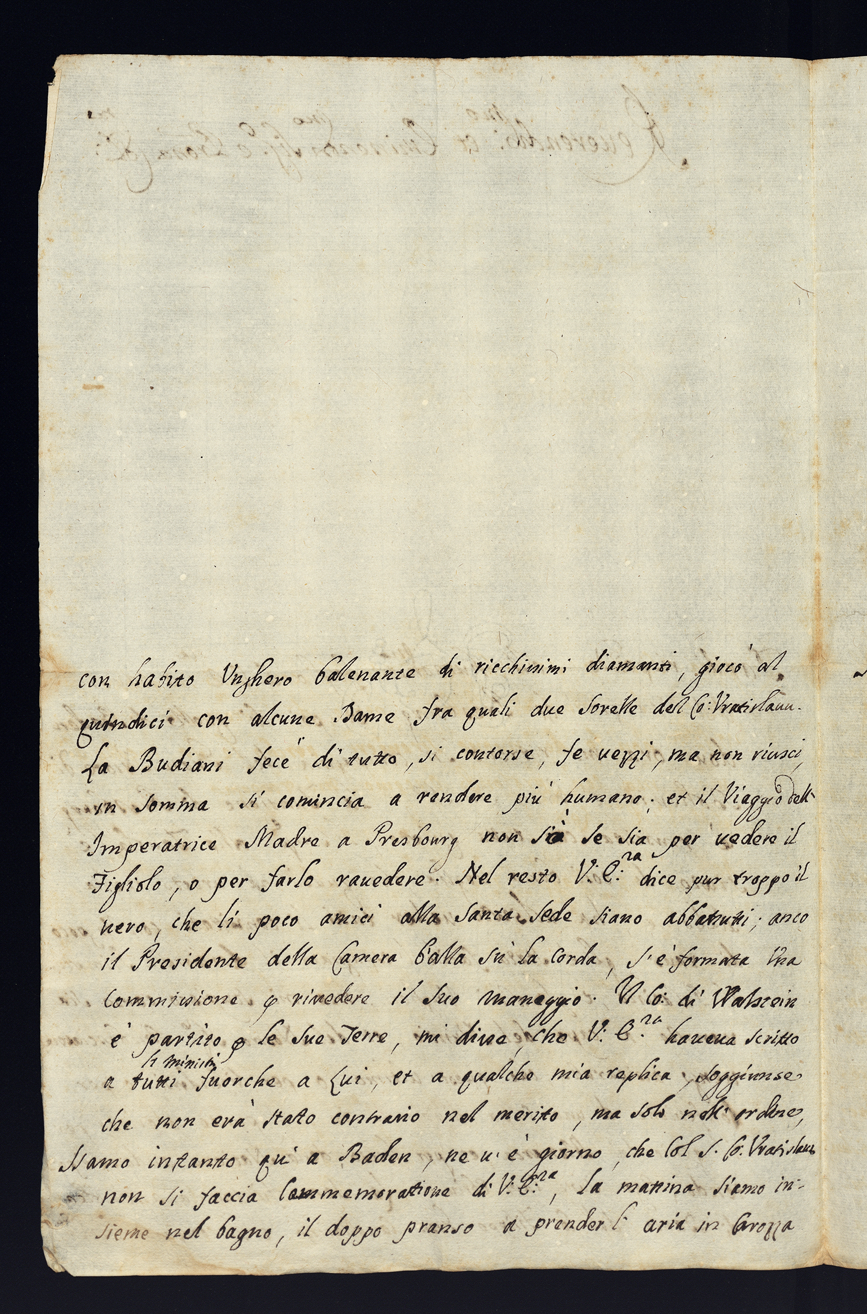 con habito Unghero balenante di ricchissimi diamanti, giocò al
quindici con alcune Dame fra quali due sorelle del Co: Vratislauu.
La Budiani fece di tutto, si contorse, fe uezzi, ma non riusci,
in somma si comincia a rendere più humano; et il Viaggio dell'
Imperatrice Madre a Presbourg non sò se sia per uedere il
Figliolo, o per farlo rauedere. Nel resto V: E:za dice pur troppo il
uero, che li poco amici alla Santa Sede siano abbattuti; anco
il Presidente della Camera balla sù la corda, s'è formata Una
Commissione p riuedere il suo maneggio. Il Co: di Walstein
è partito p le sue Terre, mi disse che V: E:za haueua scritto
li ministri
a tutti fuorche a Lui, et a qualche mia replica, soggiunse
che non era stato contrario nel merito, ma solo nell' ordine,
Siamo intanto quì a Baden, ne u'è giorno, che col S. Co: Vratislauu
non si faccia Commemoratione di V: E:za, la mattina siamo in-
sieme nel bagno, il doppo pranso a prender l' aria in Carozza